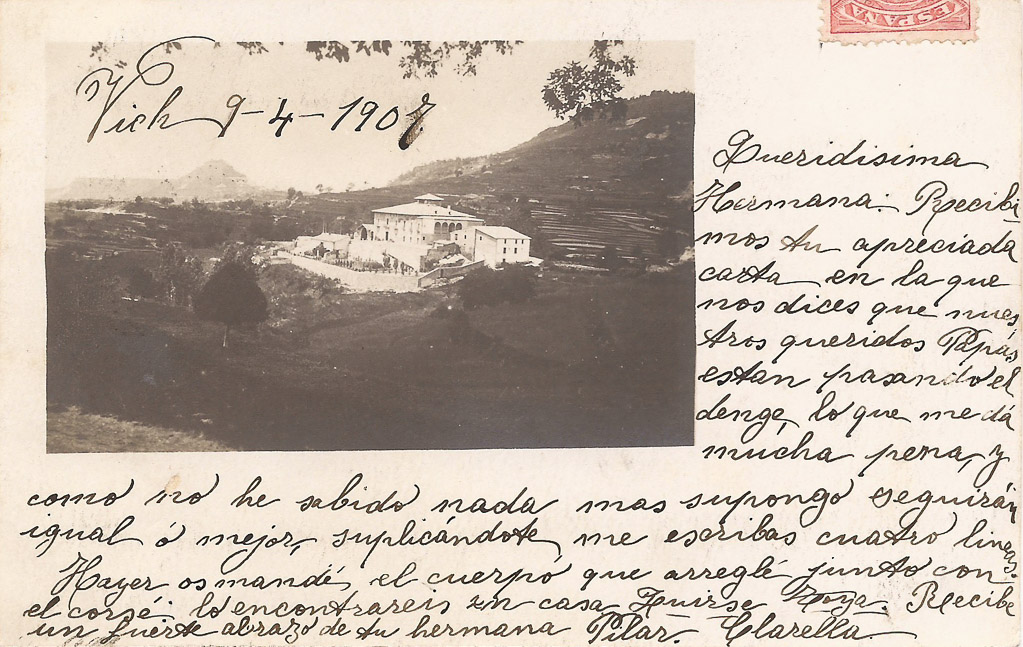 ESPAÑA
Vich 9-4-1907
Queridisima
Hermana: Recibi-
mos tu apreciada
carta en la que
nos dices que nues
tros queridos Papás
están pasando el
denge, lo que me dá
mucha pena, y
como no he sabido nada mas supongo seguirán
igual ó mejor, suplicándote, me escribas cuatro lineas.
Hayer os mandé, el cuerpo que arreglé junto con
el corsé: lo encontrareis en casa. Recibe
un fuerte abrazo de tu hermana Pilar. Clarella.